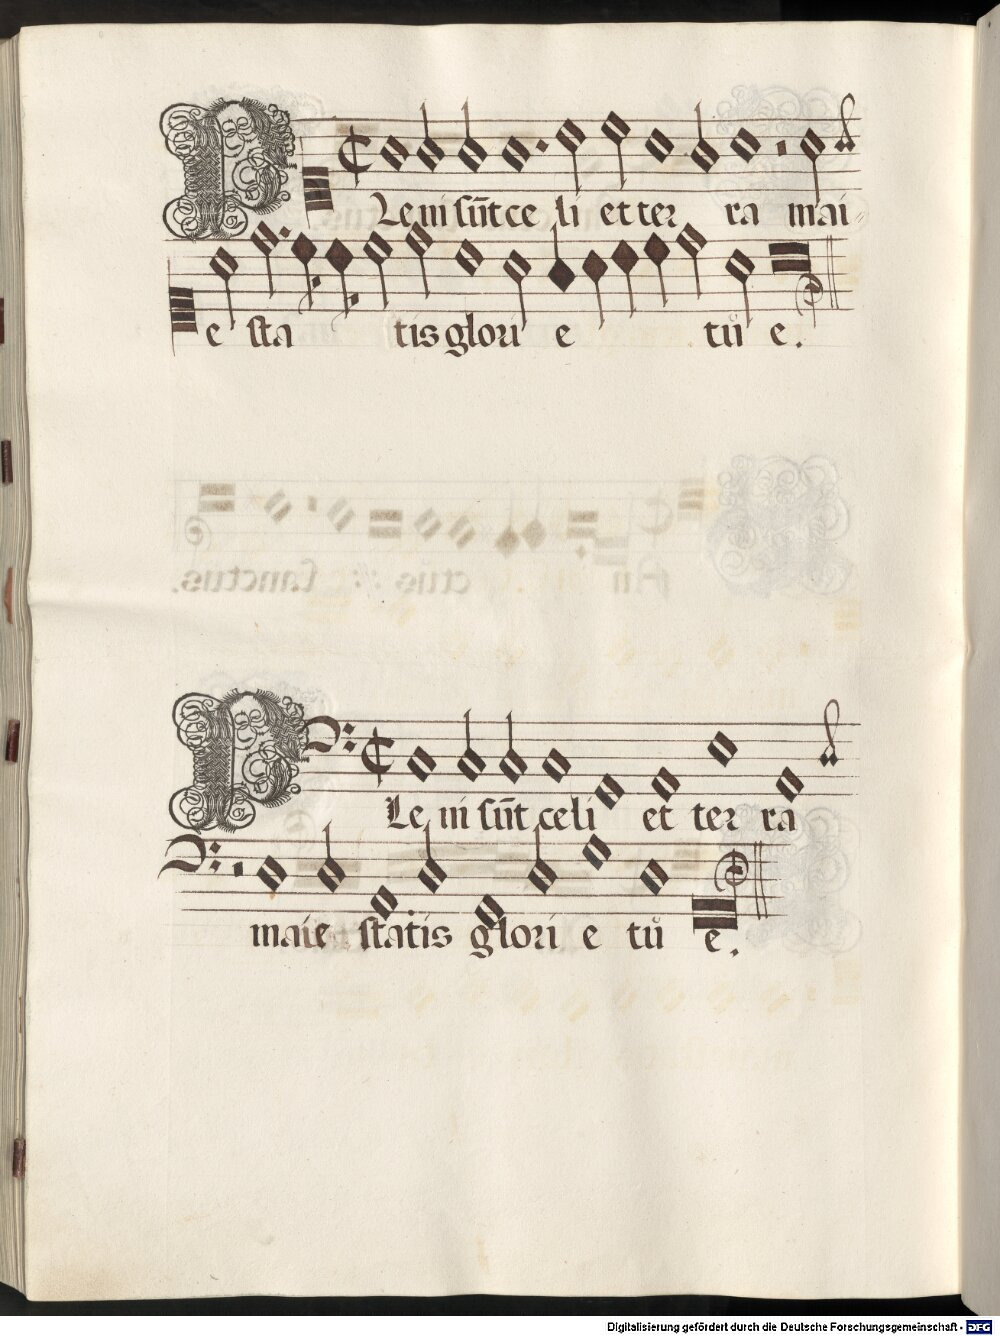 P Leni sūt ce li et ter ra mai
e sta tis glori e tů e.
P Le ni sūt celi et ter ra
maie statis glori e tů e.
Digitalisierung gefördert durch die Deutsche Forschungsgemeinschaft - DFG